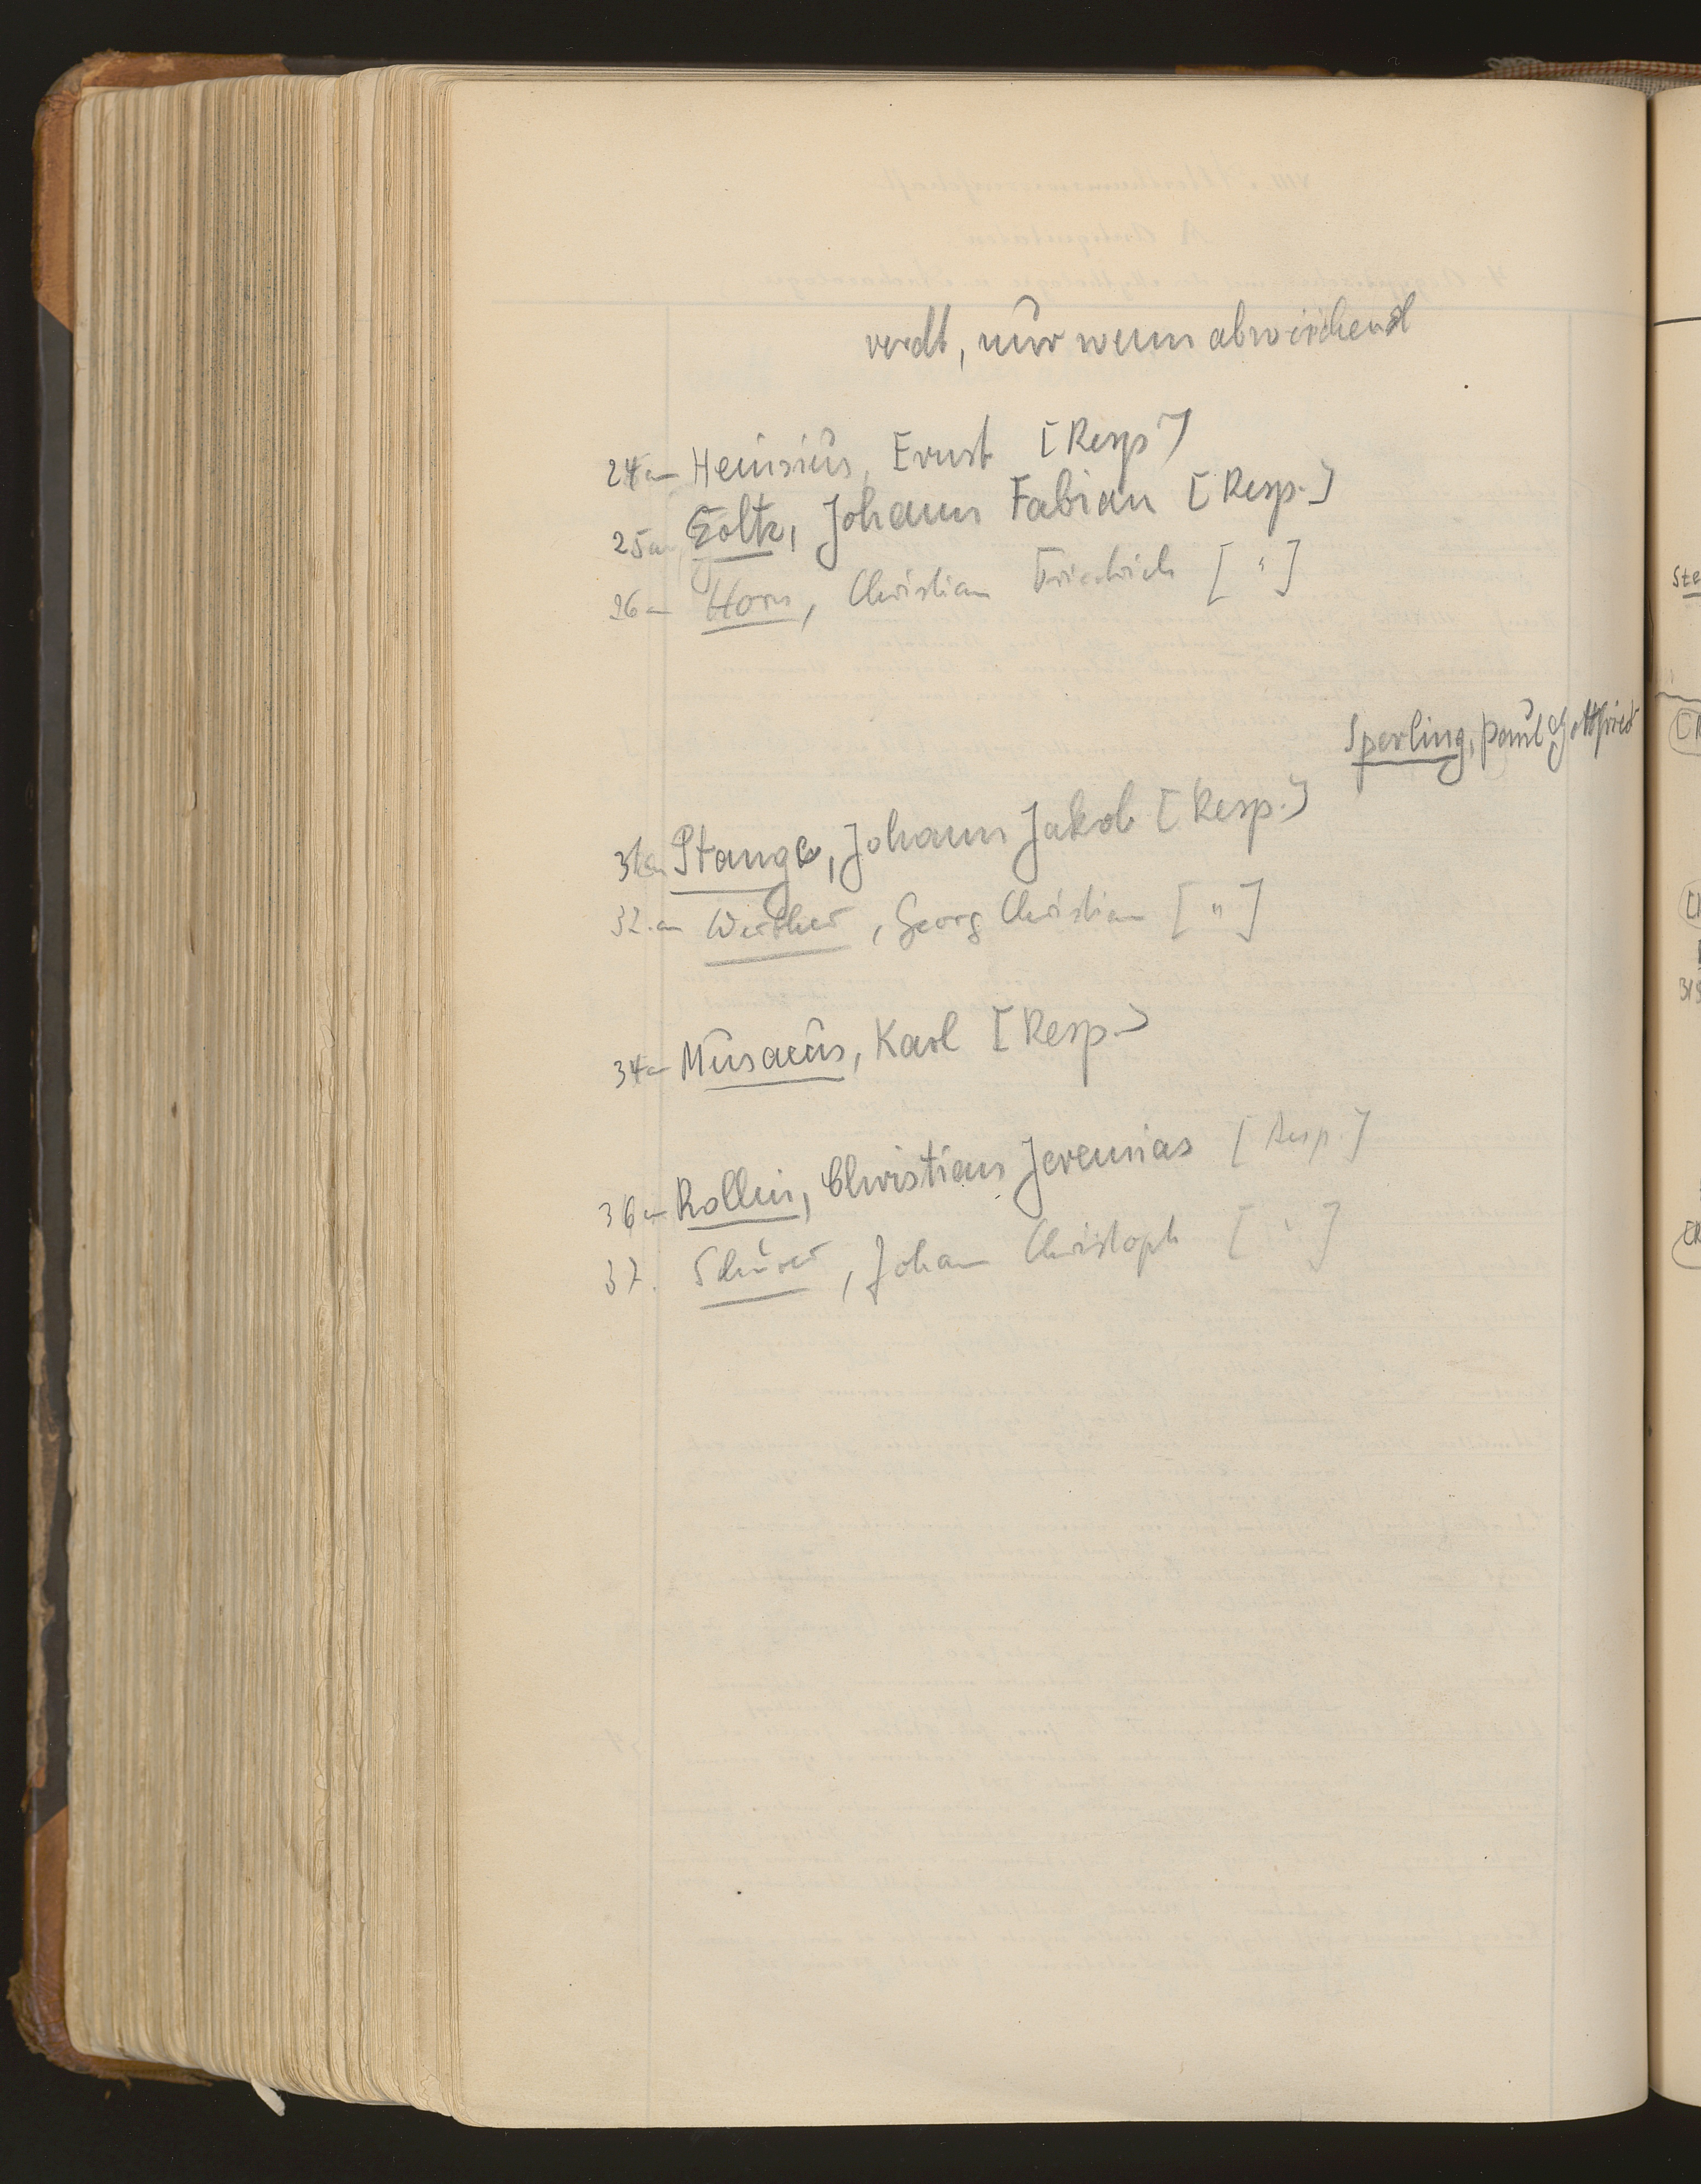 nur wenn abweichend
24an Heinsius, Ernst [Resp.]
25an Goltz, Johann Fabian [Resp.]
26an Horn, Christian Friedrich [ " ]
Sperling, Paul Gottfried
31an Stange, Johann Jakob [Resp.]
32.an Werther, Georg Christian [ " ]
34an Musaeus, Karl [Resp.]
36an Rollin, Christian Jeremias [Resp.]
37. Schürer, Johann Christoph [ " ]